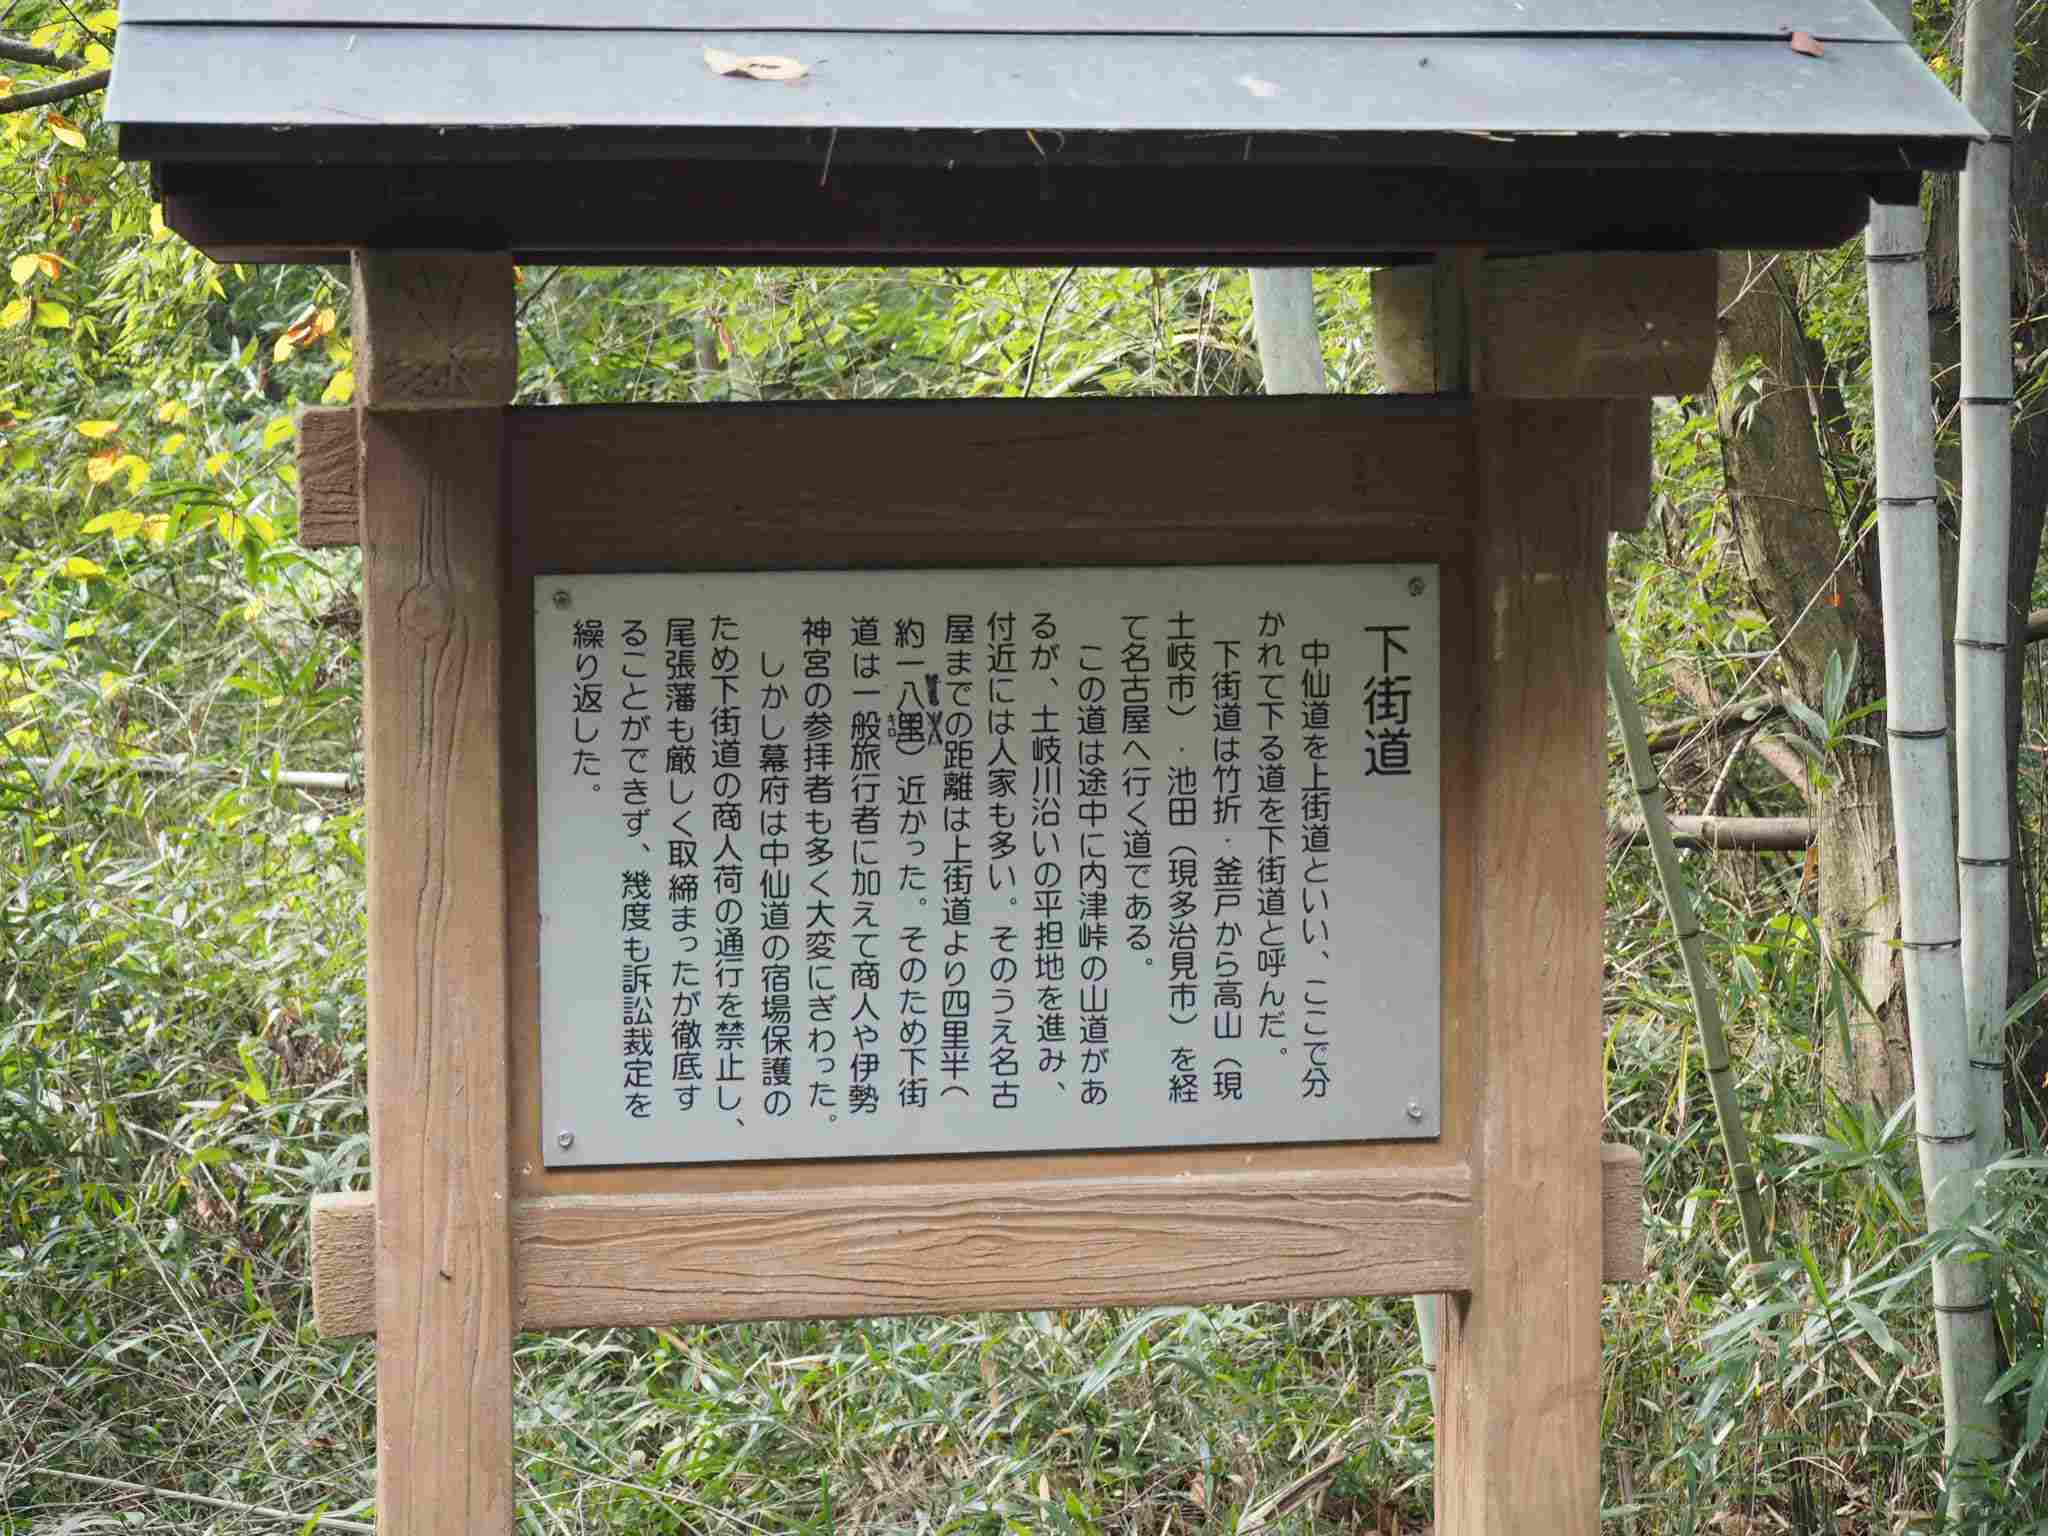 下街道
中仙道を上街道といい、ここで分
かれて下る道を下街道と呼んだ。
下街道は竹折・釜戸から高山（現
土岐市）・池田（現多治見市）を経
て名古屋へ行く道である。
この道は途中に内津峠の山道があ
るが、土岐川沿いの平担地を進み、
付近には人家も多い。そのうえ名古
屋までの距離は上街道より四里半（
約一八里）近かった。そのため下街
道は一般旅行者に加えて商人や伊勢
神宮の参拝者も多く大変にぎわった。
しかし幕府は中仙道の宿場保護の
ため下街道の商人荷の通行を禁止し、
尾張藩も厳しく取締まったが徹底す
ることができず、幾度も訴訟裁定を
繰り返した。